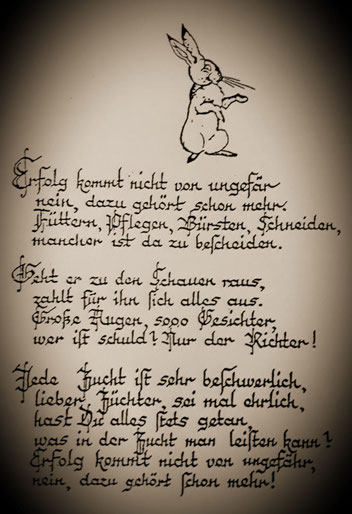 Erfolg kommt nicht von ungefär
nein, dazu gehört schon mehr.
Füttern, Pflegen, Bürsten, Schneiden,
mancher ist da zu bescheiden.
Geht er zu den Schauen raus,
zahlt für ihn sich alles aus.
Große Augen, sooo Gesichter,
wer ist schuld? Nur der Richter!
Jede Zucht ist sehr beschwerlich,
lieber Züchter, sei mal ehrlich,
hast Du alles stets getan,
was in der Zucht man leisten kann?
Erfolg kommt nicht von ungefähr,
nein, dazu gehört schon mehr!